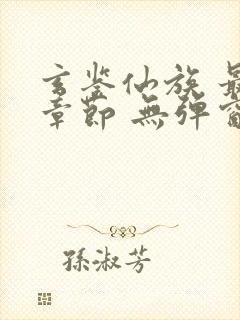 玄鉴仙族 最
章節 無弹窗
孫淑芳